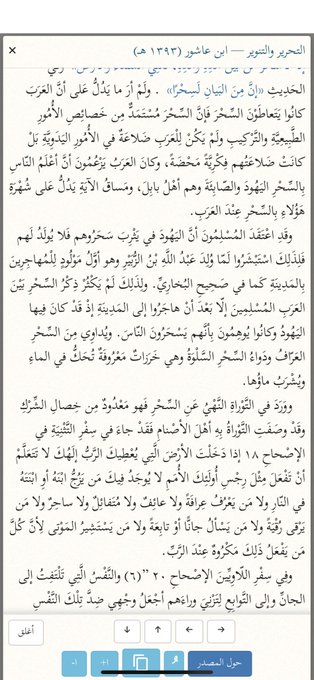 التحرير والتنوير — ابن عاشور (١٣٩٣ هـ)
×
الحَدِيثِ «إنَّ مِنَ البَيانِ لَسِحْرًا» . ولَمْ أرَ ما يَدُلُّ عَلى أنَّ العَرَبَ
كانُوا يَتَعاطَوْنَ السِّحْرَ فَإنَّ السِّحْرَ مُسْتَمَدٌّ مِن خَصائِصِ الأُمُورِ
الطَّبِيعِيَّةِ والتَّرْكِيبِ ولَمْ يَكُنْ لِلْعَرَبِ ضَلاعَةٌ في الأُمُورِ اليَدَوِيَّةِ بَلْ
كانَتْ ضَلاعَتُهم فِكْرِيَّةً مَحْضَةً، وكانَ العَرَبُ يَزْعُمُونَ أنَّ أعْلَمَ النّاسِ
بِالسِّحْرِ اليَهُودُ والصّابِئَةُ وهم أهْلُ بابِلَ، ومَساقُ الآيَةِ يَدُلُّ عَلى شُهْرَةِ
هَؤُلاءِ بِالسِّحْرِ عِنْدَ العَرَبِ.
وقَدِ اعْتَقَدَ المُسْلِمُونَ أنَّ اليَهُودَ في يَثْرِبَ سَحَرُوهم فَلا يُولَدُ لَهم
فَلِذَلِكَ اسْتَبْشَرُوا لَمّا وُلِدَ عَبْدُ اللَّهِ بْنُ الزُّبَيْرِ وهو أوَّلُ مَوْلُودٍ لِلْمُهاجِرِينَ
بِالمَدِينَةِ كَما في صَحِيحِ البُخارِيِّ. ولِذَلِكَ لَمْ يَكْثُرْ ذِكْرُ السِّحْرِ بَيْنَ
العَرَبِ المُسْلِمِينَ إلّا بَعْدَ أنْ هاجَرُوا إلى المَدِينَةِ إذْ قَدْ كانَ فِيها
اليَهُودُ وكانُوا يُوهِمُونَ بِأنَّهم يَسْحَرُونَ النّاسَ. ويُداوِي مِنَ السِّحْرِ
العَرّافُ ودَواءُ السِّحْرِ السَّلْوَةُ وهي خَرَزاتٌ مَعْرُوفَةٌ تُحَكُّ في الماءِ
ويُشْرَبُ ماؤُها.
ووَرَدَ في التَّوْراةِ النَّهْيُ عَنِ السِّحْرِ فَهو مَعْدُودٌ مِن خِصالِ الشِّرْكِ
وقَدْ وصَفَتِ التَّوْراةُ بِهِ أهْلَ الأصْنامِ فَقَدْ جاءَ في سِفْرِ التَّثْنِيَةِ في
الإصْحاحِ ١٨ إذا دَخَلْتَ الأرْضَ الَّتِي يُعْطِيكَ الرَّبُّ إلَهُكَ لا تَتَعَلَّمْ
أنْ تَفْعَلَ مِثْلَ رِجْسِ أُولَئِكَ الأُمَمِ لا يُوجَدُ فِيكَ مَن يَزُجُّ ابْنَهُ أوِ ابْنَتَهُ
في النّارِ ولا مَن يَعْرُفُ عِرافَةً ولا عائِفٌ ولا مُتَفائِلٌ ولا ساحِرٌ ولا مَن
يَرْقى رُقْيَةً ولا مَن يَسْألُ جانًّا أوْ تابِعَةً ولا مَن يَسْتَشِيرُ المَوْتى لِأنَّ كُلَّ
مَن يَفْعَلُ ذَلِكَ مَكْرُوهٌ عِنْدَ الرَّبِّ.
وفِي سِفْرِ اللّاوِيِّينَ الإصْحاحِ ٢٠ ”(٦) والنَّفْسُ الَّتِي تَلْتَفِتُ إلى
الجانِّ وإلى التَّوابِعِ لِتَزْنِيَ وراءَهم أجْعَلُ وجْهِي ضِدَّ تِلْكَ النَّفْسِ
→ ← ↑ ↓ أغلق
حول المصدر +١ -١